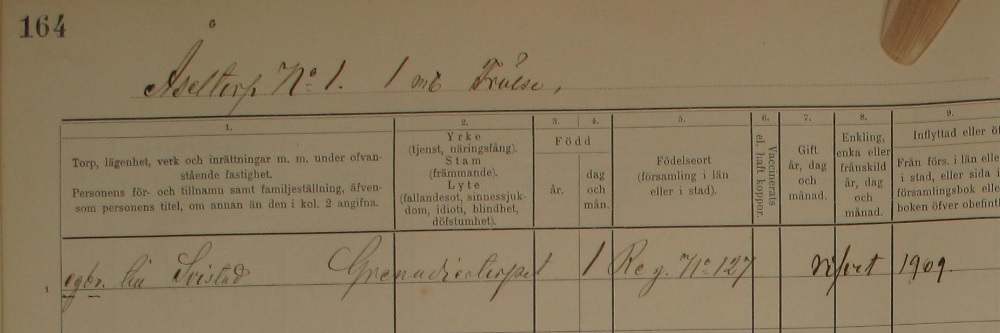 164
Åseltorp No 1. 1 mt Frälse,
1.
Torp, lägenhet, verk och inrättningar m. m. under ofvan-
stående fastighet.
Personens för- och tillnamn samt familjeställning, äfven-
som personens titel, om annan än den i kol. 2 angifna.
2.
Yrke
(tjenst, näringsfång).
Stam
(främmande).
Lyte
(fallandesot, sinnessjuk-
dom, idioti, blindhet,
döfstumhet).
3. 4.
Född
år.
dag
och
mån.
5.
Födelseort
(församling i län
eller i stad).
6.
Vaccinerats
el. haft koppor.
7.
Gift
år, dag
och
månad.
8.
Enkling,
enka eller
frånskild
år, dag
och
månad.
9.
Inflyttad eller öf
Från förs. i län elle
i stad, eller sida i
församlingsbok elle
boken öfver obefintl
1 Grenadiertorpet 1 Reg. No 127 1909.